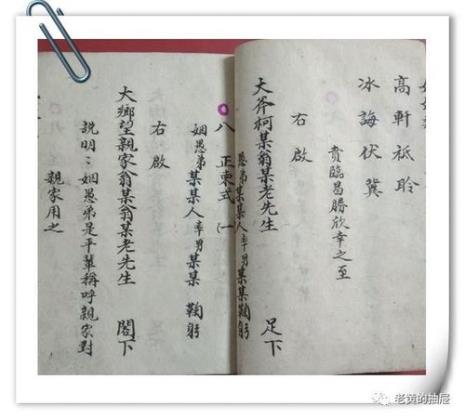 高軒祗聆
冰誨伏冀
賁臨昌勝欣幸之至
右啟
大斧柯某翁某老先生 足下
愚弟某某人率男某某鞠躬
八 正柬式(一)
姻愚弟某某人率男某某 鞠躬
右啟
大鄉望親家翁某翁某老先生 閣下
說明：姻愚弟是平輩稱呼親家對
親家用之
老黄的抽屉